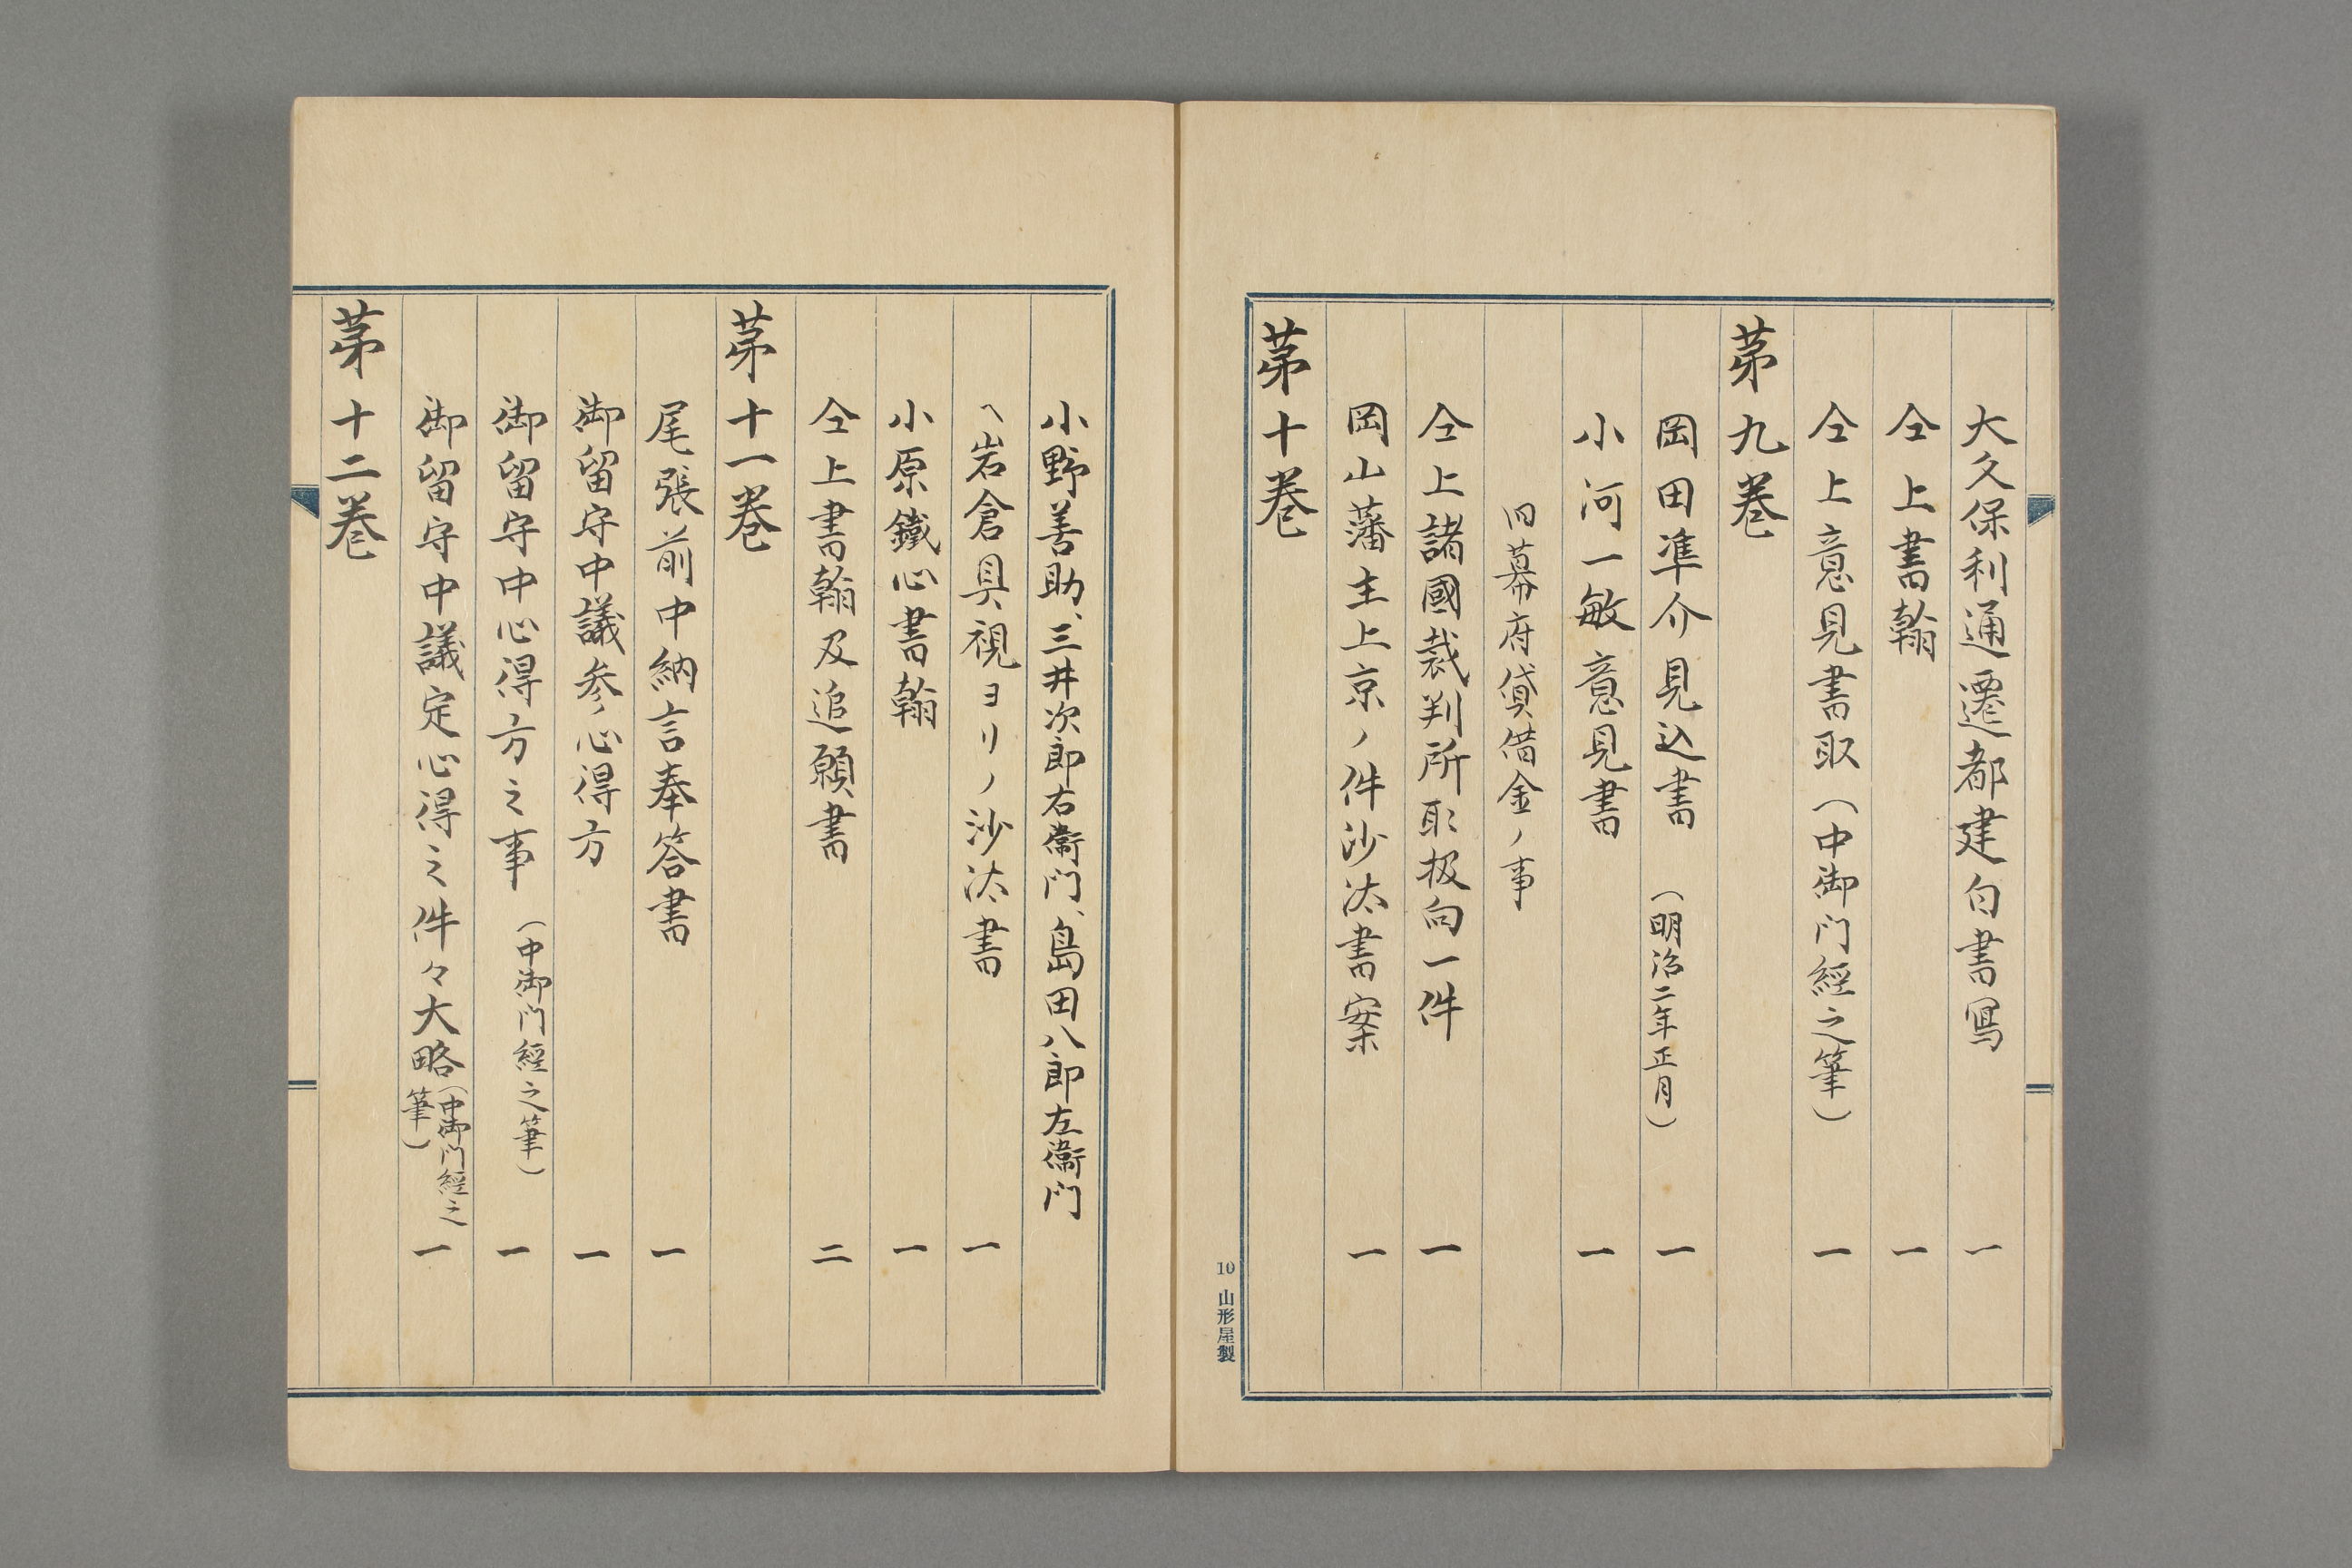 大久保利通遷都建白書寫 一
仝上書翰 一
仝上意見書取（中御門經之筆） 一
苐九巻
岡田準介見込書（明治二年正月） 一
小河一敏意見書 一
旧幕府貸借金ノ事
仝上諸國裁判所取扱向一件 一
岡山藩主上京ノ件沙汰書案 一
苐十巻
10 山形屋製
小野善助、三井次郎右衞門、島田八郎左衞門
ヘ岩倉具視ヨリノ沙汰書 一
小原鐵心書翰 一
仝上書翰及追願書 二
苐十一巻
尾張前中納言奉答書 一
御留守中議参心得方 一
御留守中心得方之事（中御門經之筆） 一
御留守中議定心得之件々大略（中御門經之筆） 一
苐十二巻